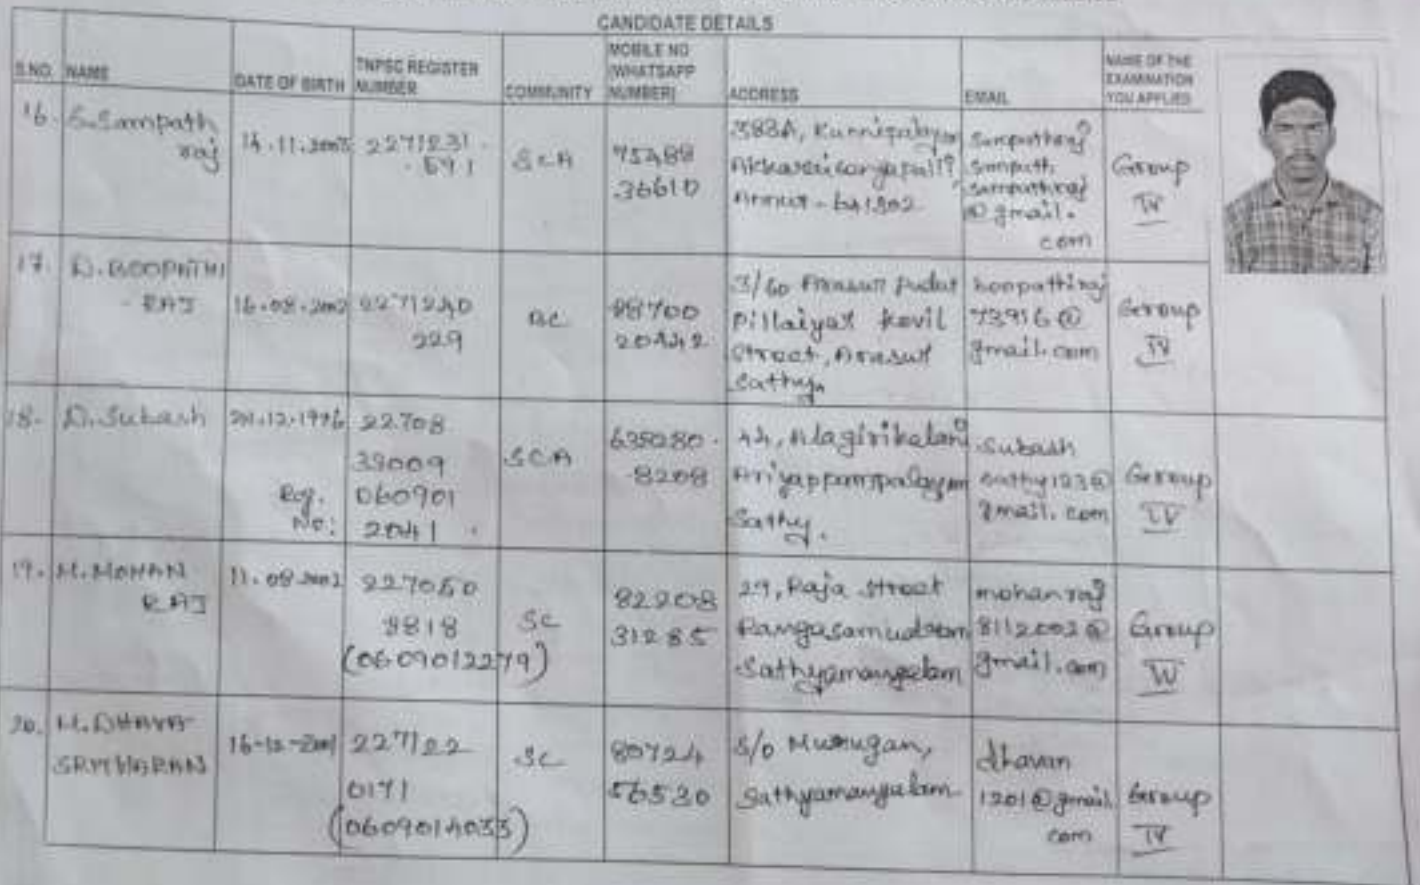 CANDIDATE DETAILS
S.NO. NAME DATE OF BIRTH TNPSC REGISTER NUMBER COMMUNITY MOBILE NO (WHATSAPP NUMBER) ADDRESS EMAIL NAME OF THE EXAMINATION YOU APPLIED
16. S.Sampath raj
2271231
591
SCA
75488
36610
383A,
Annur - 641802
@gmail.
com
Group
IV
17. D. BOOPATHI
RAJ
16.08.2002
2271240
229
BC
98700
20442
3/60 Arasur Pudur
Pillaiyar Kovil
Street, Arasur
Sathy.
boopathiraj
73916@
gmail.com
Group
IV
18. D. Subash
12.1996
22708
39009
Reg. No:
060901
2041
SCA
635080
-8208
44,
Ariyappampalayam
Sathy.
Subash
sathy123@
gmail.com
Group
IV
19. M. MOHAN
RAJ
11.08.2002
227050
8818
(0609012279)
SC
82208
31285
29, Raja Street
Rangasamudram
Sathyamangalam
mohanraj
8112002@
gmail.com
Group
IV
20.
227122
0171
(0609014033)
SC
80724
56530
S/o Murugan,
Sathyamangalam
dhavan
1201@gmail
com
Group
IV